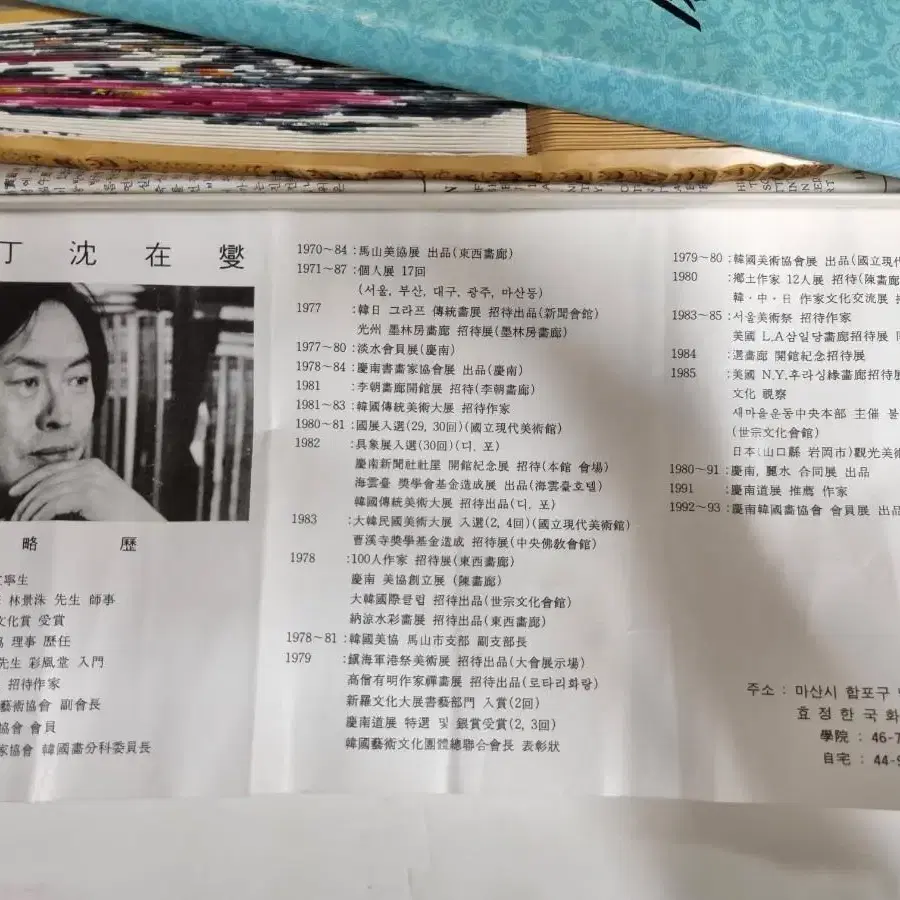 丁 沈 在 燮
略 歷
寧生
林景洙 先生 師事
文化賞 受賞
理事 歷任
先生 彩風堂 入門
招待作家
藝術協會 副會長
協會 會員
家協會 韓國畵分科委員長
1970~84 : 馬山美協展 出品(東西畵廊)
1971~87 : 個人展 17回
(서울, 부산, 대구, 광주, 마산등)
1977 : 韓日 그라프 傳統畵展 招待出品(新聞會館)
光州 墨林房畵廊 招待展(墨林房畵廊)
1977~80 : 淡水會員展(慶南)
1978~84 : 慶南書畵家協會展 出品(慶南)
1981 : 李朝畵廊開館展 招待(李朝畵廊)
1981~83 : 韓國傳統美術大展 招待作家
1980~81 : 國展入選(29, 30回)(國立現代美術館)
1982 : 具象展入選(30回)(디. 포)
慶南新聞社社屋 開館紀念展 招待(本館 會場)
海雲臺 奬學會基金造成展 出品(海雲臺호텔)
韓國傳統美術大展 招待出品(디. 포)
1983 : 大韓民國美術大展 入選(2, 4回)(國立現代美術館)
曹溪寺奬學基金造成 招待展(中央佛敎會館)
1978 : 100人作家 招待展(東西畵廊)
慶南 美協創立展 (陳畵廊)
大韓國際클럽 招待出品(世宗文化會館)
納凉水彩畵展 招待出品(東西畵廊)
1978~81 : 韓國美協 馬山市支部 副支部長
1979 : 鎭海軍港祭美術展 招待出品(大會展示場)
高僧有明作家禪畵展 招待出品(로타리화랑)
新羅文化大展書藝部門 入賞(2回)
慶南道展 特選 및 銀賞受賞(2, 3回)
韓國藝術文化團體總聯合會長 表彰狀
1979~80 : 韓國美術協會展 出品(國立現代
1980 : 鄕土作家 12人展 招待(陳畵廊
韓・中・日 作家文化交流展
1983~85 : 서울美術祭 招待作家
美國 L.A삼일당畵廊招待展
1984 : 選畵廊 開館紀念招待展
1985 : 美國 N.Y.후라싱緣畵廊招待展
文化 視察
새마을운동中央本部 主催 불
(世宗文化會館)
日本(山口縣 岩岡市)觀光美術
1980~91 : 慶南, 麗水 合同展 出品
1991 : 慶南道展 推薦 作家
1992~93 : 慶南韓國畵協會 會員展 出品
주소 : 마산시 합포구
효정한국화
學院 : 46-7
自宅 : 44-9